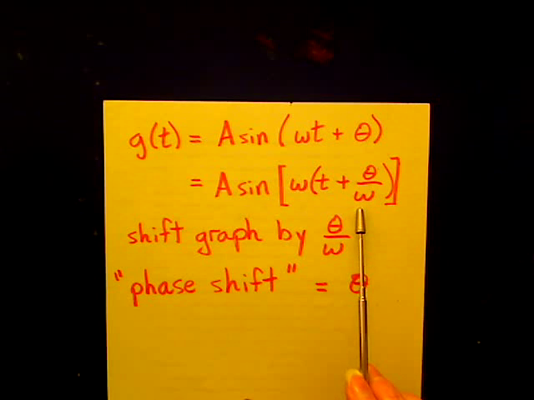 g(t) = A sin (ωt + θ)
= A sin [ω(t + θ/ω)]
shift graph by θ/ω
"phase shift" = θ